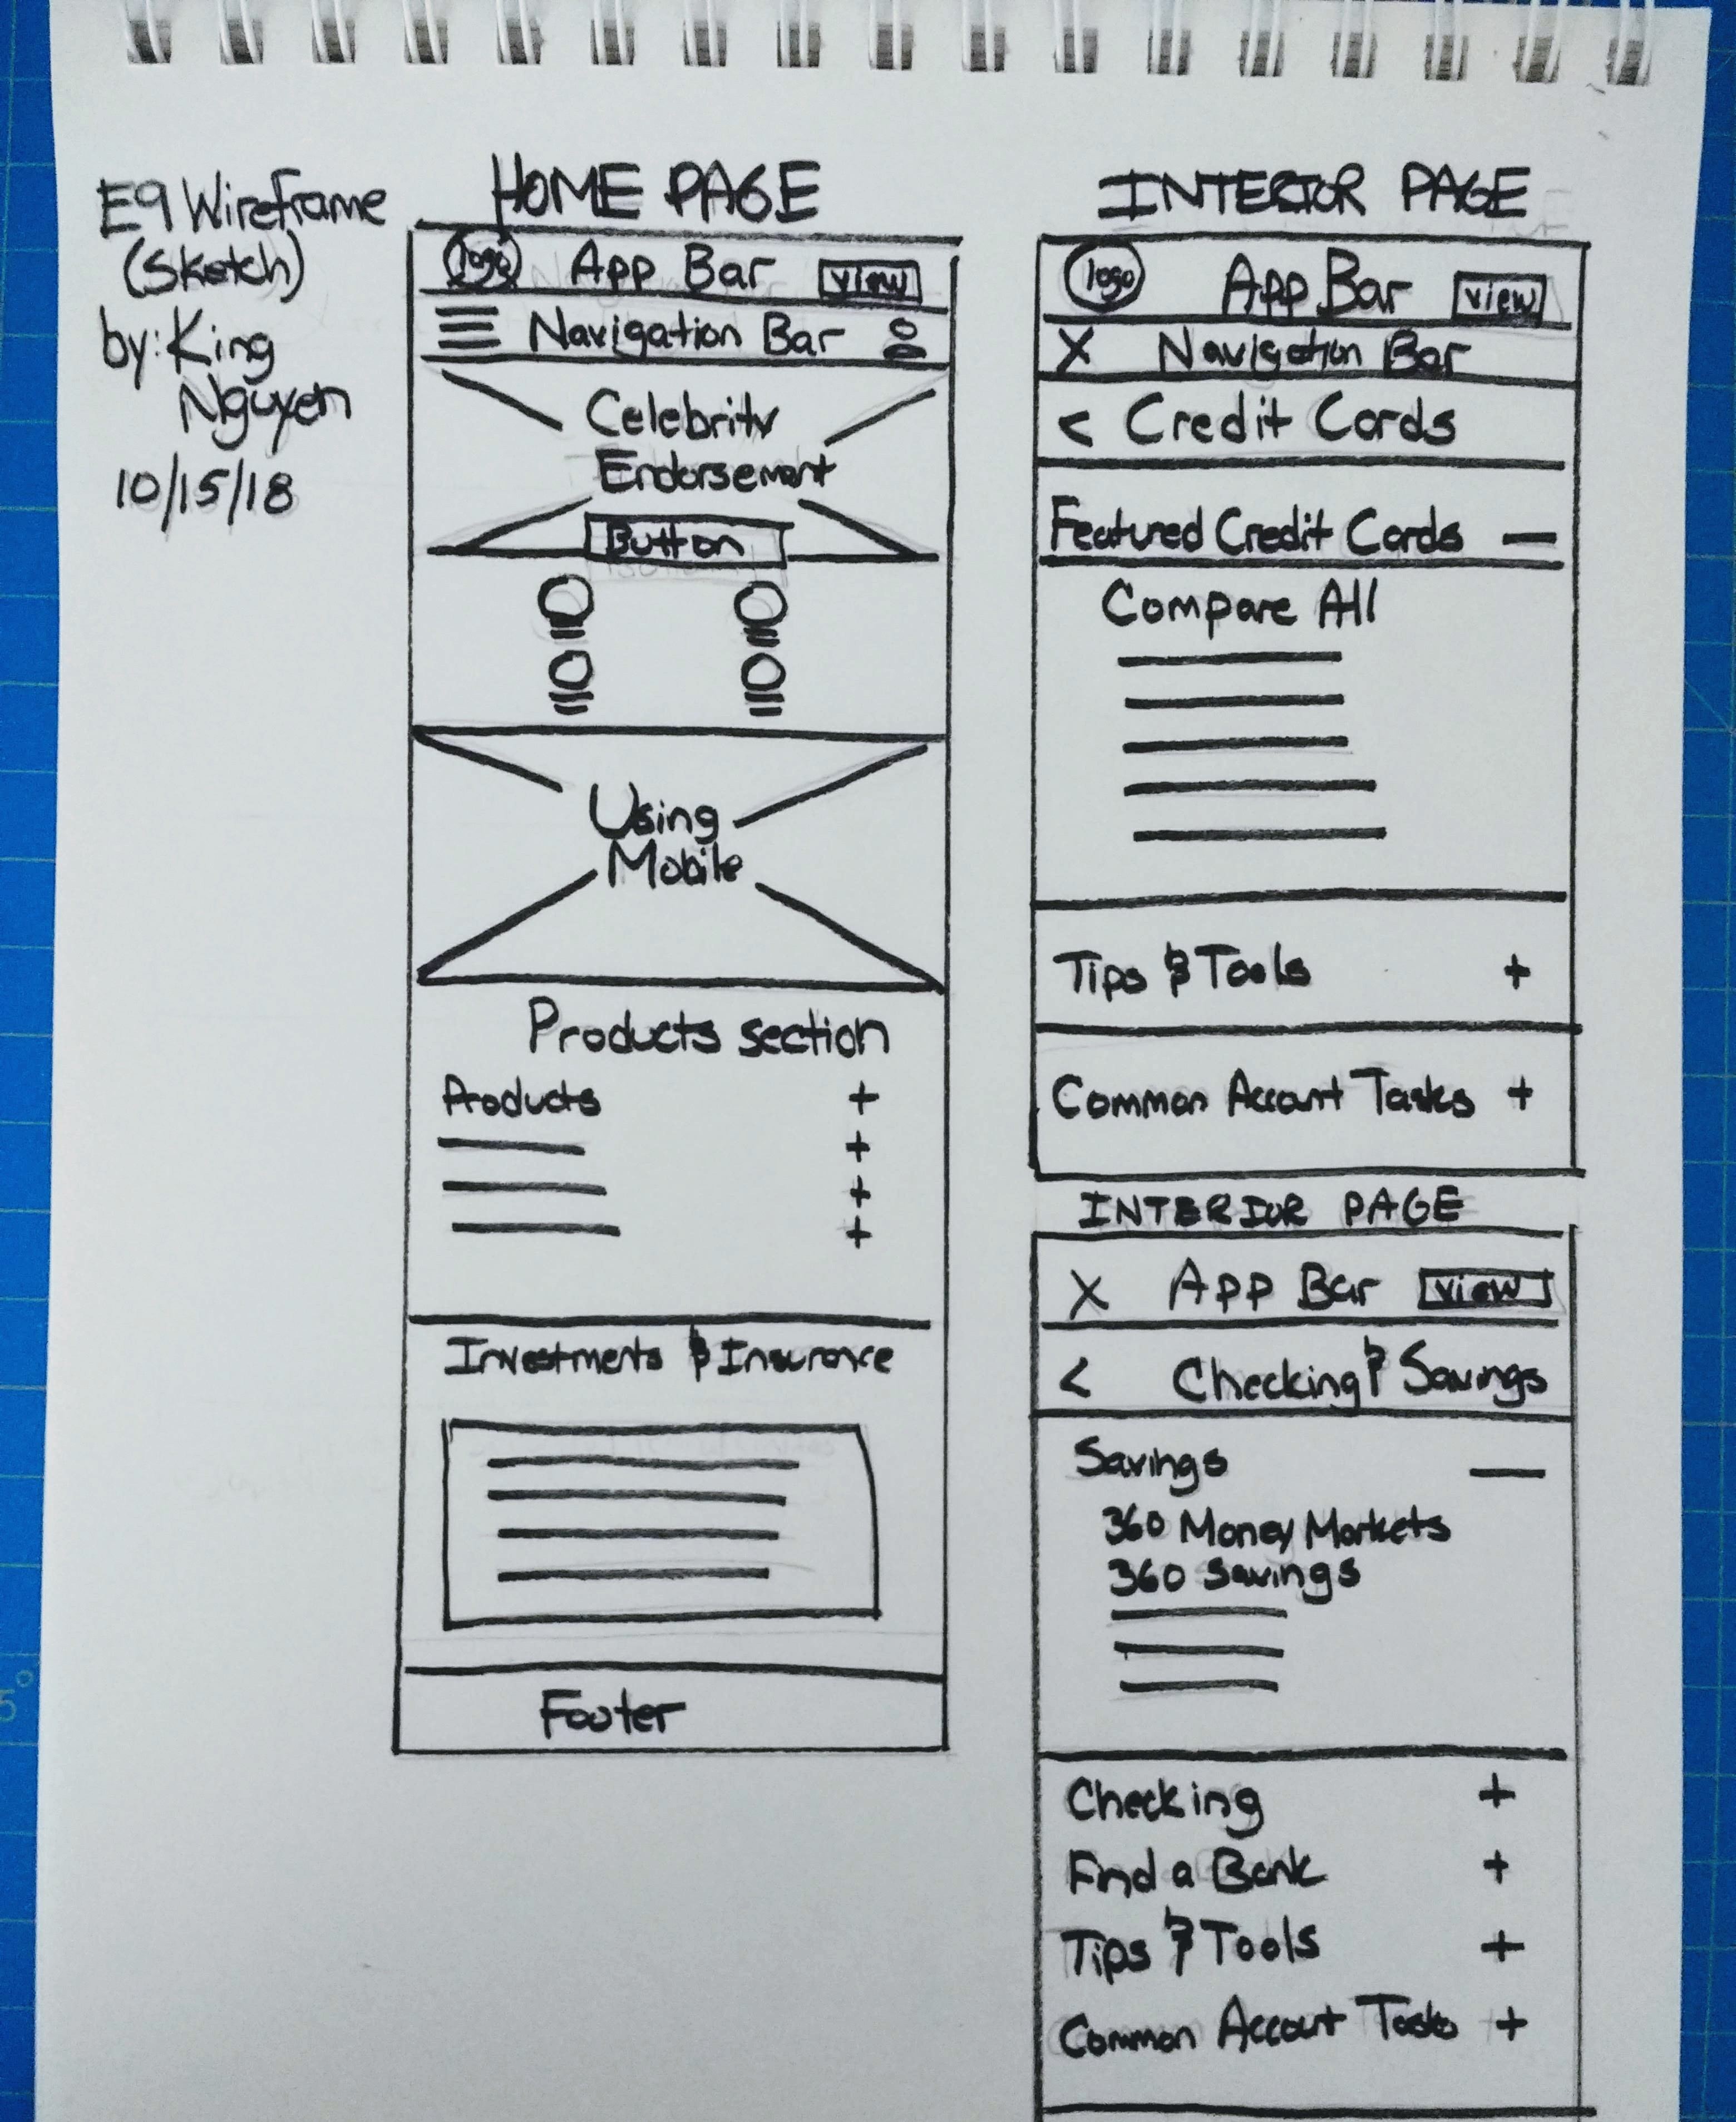 E9 Wireframe
(Sketch)
by: King
Nguyen
10/15/18
HOME PAGE
logo App Bar view
Navigation Bar
Celebrity
Endorsement
Button
Using
Mobile
Products section
Products +
+
+
+
Investments & Insurance
Footer
INTERIOR PAGE
logo App Bar view
X Navigation Bar
< Credit Cards
Featured Credit Cards —
Compare All
Tips & Tools +
Common Account Tasks +
INTERIOR PAGE
X App Bar view
< Checking & Savings
Savings —
360 Money Markets
360 Savings
Checking +
Find a Bank +
Tips & Tools +
Common Account Tasks +